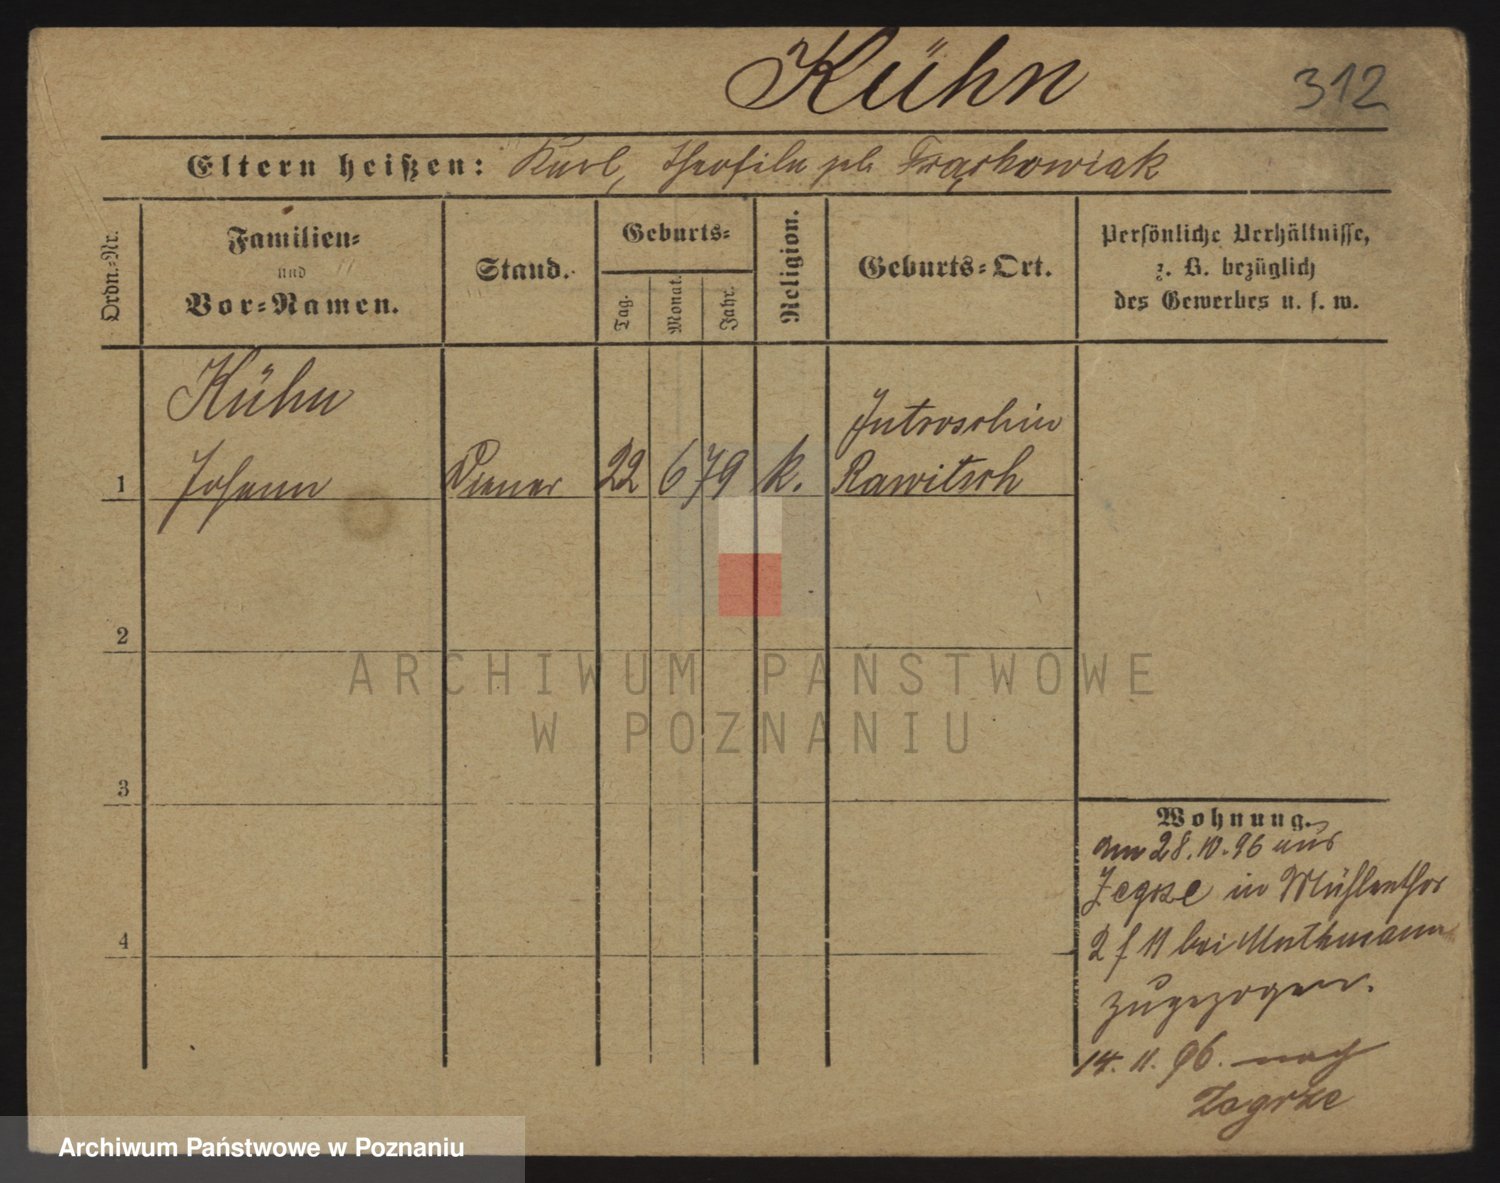 Kühn
312
Eltern heißen: Karl, Theofila geb. Frąckowiak
Ordn.-Nr.
Familien-
und
Vor-Namen.
Stand.
Geburts-
Tag.
Monat.
Jahr.
Religion.
Geburts-Ort.
Persönliche Verhältnisse,
z. B. bezüglich
des Gewerbes u. s. w.
Kühn
Jutroschin
1 Johann Diener 22 6 79 k. Rawitsch
2
3
4
ARCHIWUM PAŃSTWOWE
W POZNANIU
Wohnung.
am 28.10.96 aus
in Mühlenthor
2 f 11 bei Muthmann
zugezogen.
14. 11. 96. nach
Zagrze
Archiwum Państwowe w Poznaniu